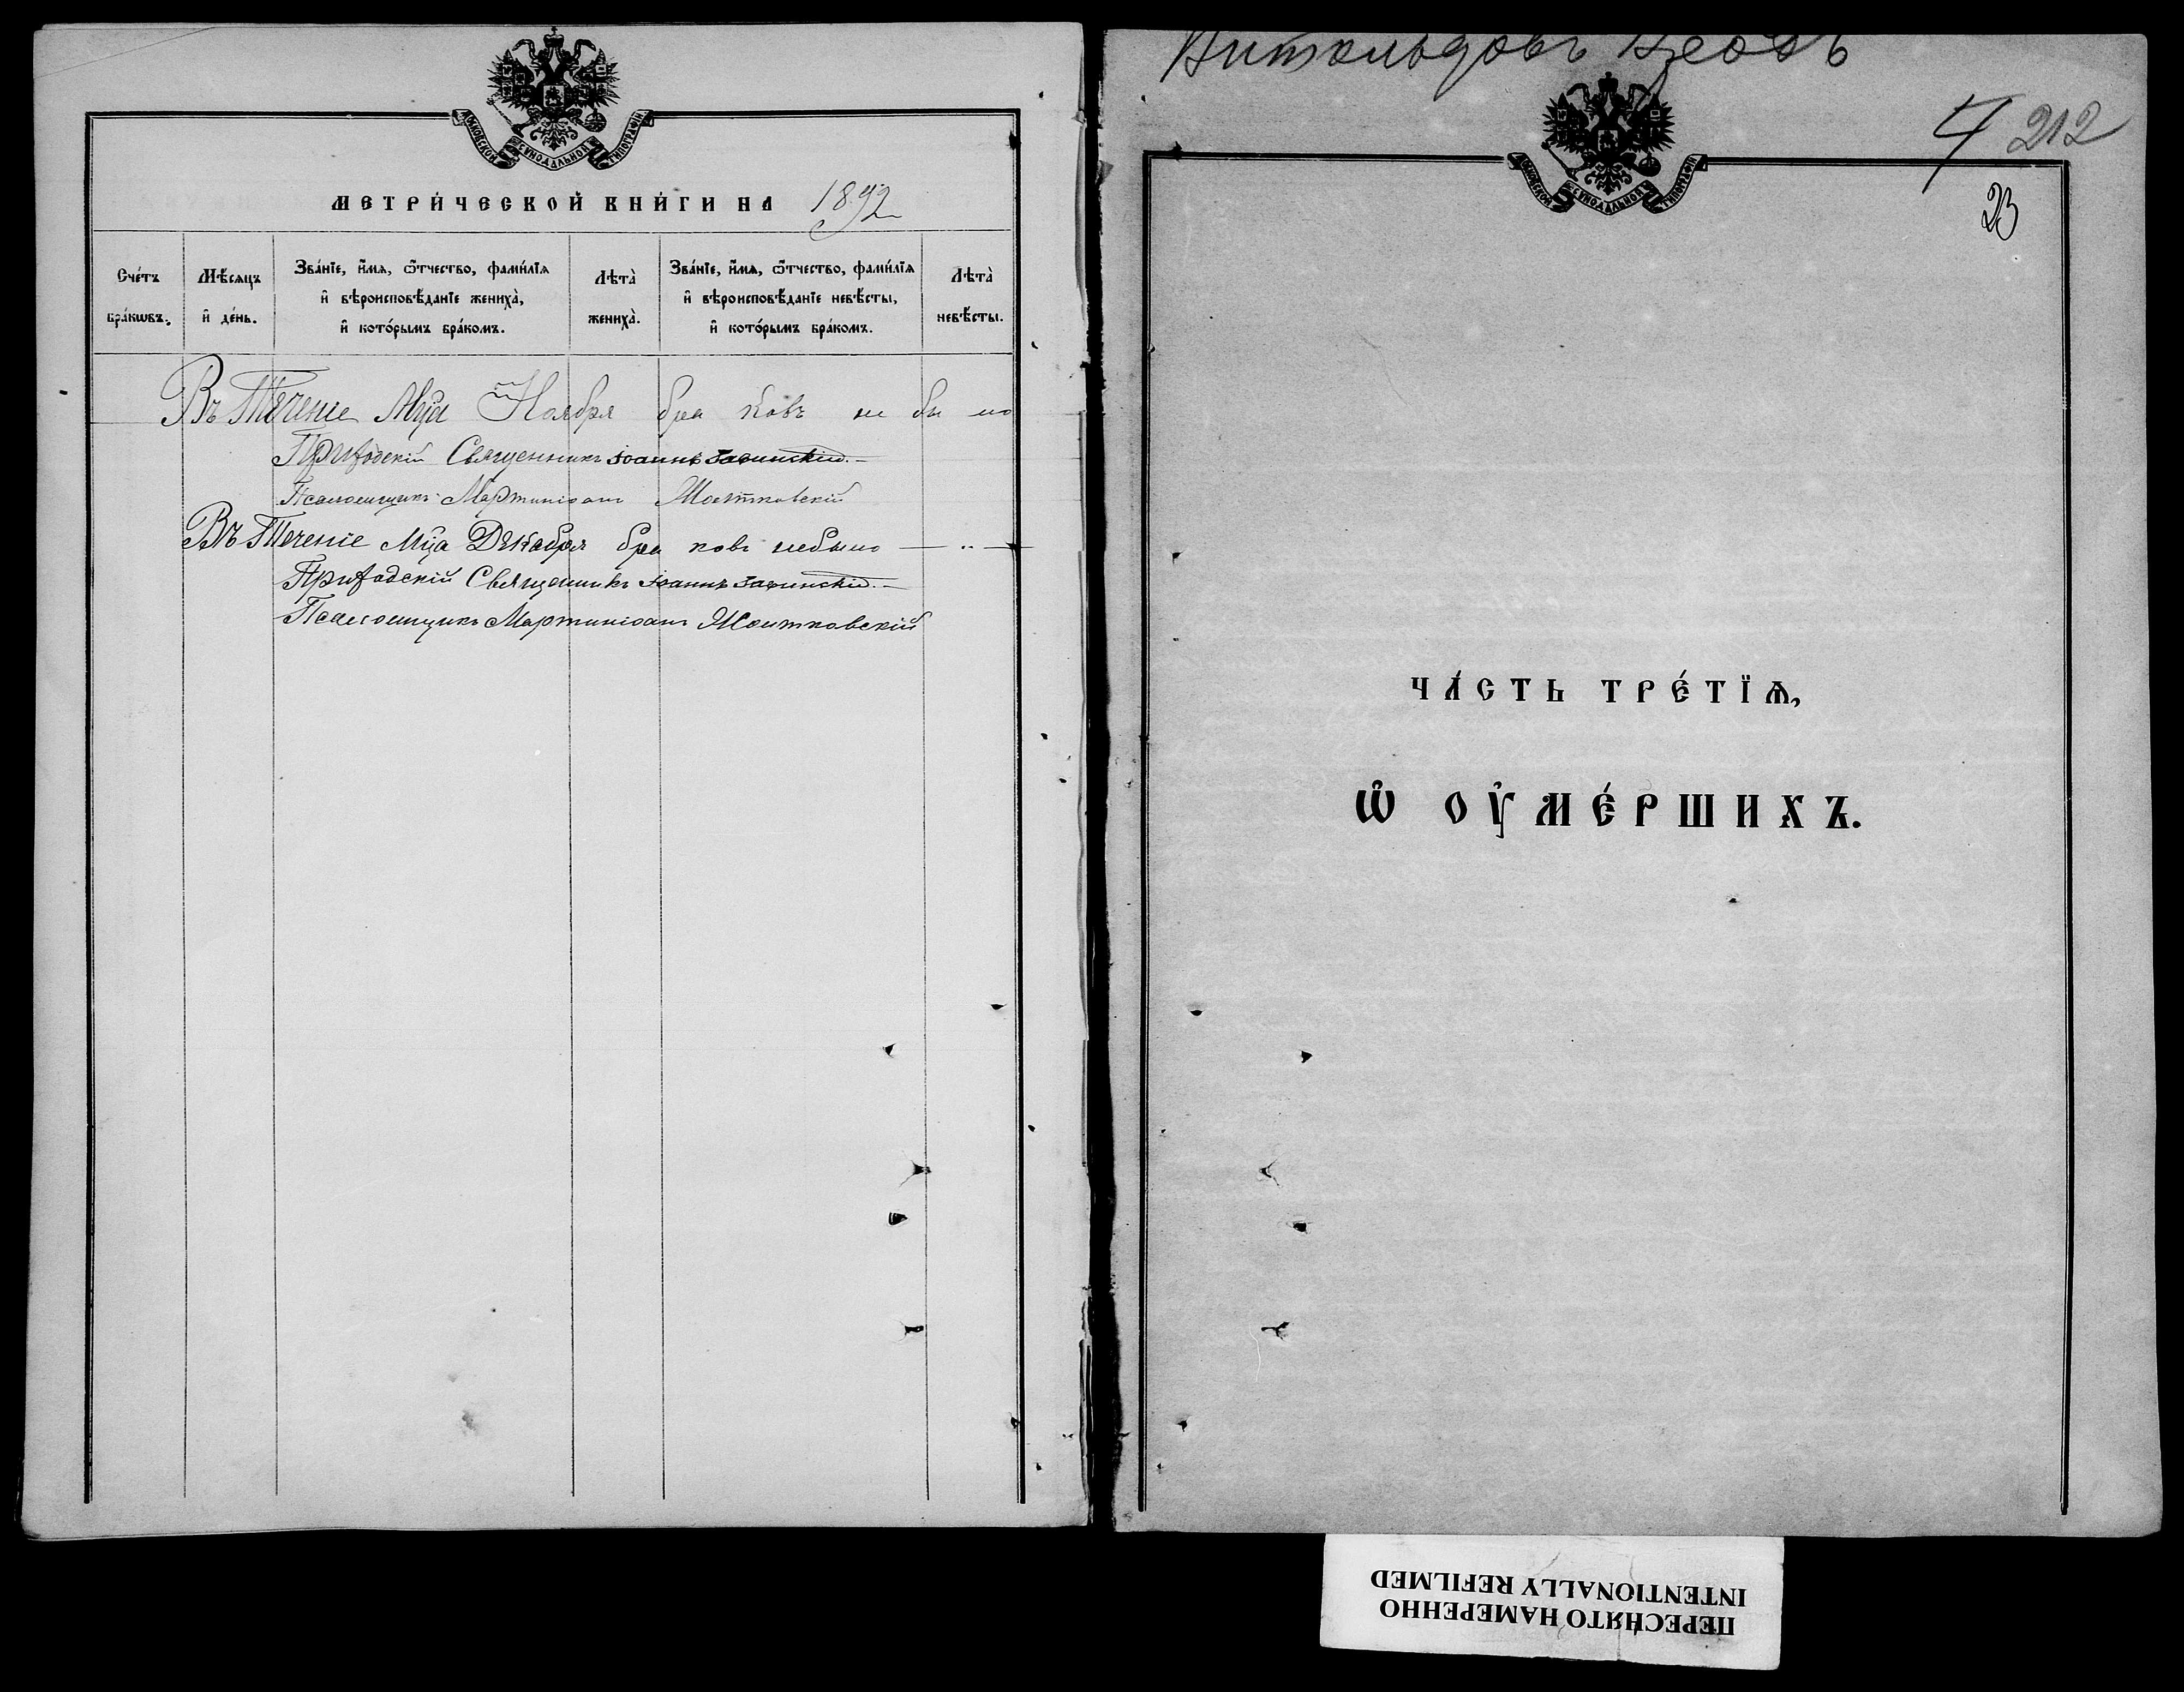 МОСКОВСКОЙ СѴНОДАЛЬНОЙ ТИПОГРАФІИ
МЕТРИ́ЧЕСКОЙ КНИ́ГИ НА 1892
Сче́тъ бра́кѡвъ.
Мѣ́сяцъ и҆ де́нь.
Зва́нїе, и҆́мѧ, ѻ҆́тчество, фами́лїѧ
и҆ вѣроисповѣ́данїе жениха̀,
и҆ кото́рымъ бра́комъ.
Лѣта̀ жениха̀.
Зва́нїе, и҆́мѧ, ѻ҆́тчество, фами́лїѧ
и҆ вѣроисповѣ́данїе невѣ́сты,
и҆ кото́рымъ бра́комъ.
Лѣта̀ невѣ́сты.
Въ Теченіе Мца Ноября бра ковъ не бы ло
Приходскій Священникъ Іоаннъ
Псаломщикъ Мартиніанъ
Въ Теченіе Мца Декабря бра ковъ небыло — „ —
Приходскій Священникъ Іоаннъ
Псаломщикъ Мартиніанъ
4 212
23
МОСКОВСКОЙ СѴНОДАЛЬНОЙ ТИПОГРАФІИ
ЧА́СТЬ ТРЕ́ТЇѦ,
Ѡ҆ ОУ҆МЕ́РШИХЪ.
ПЕРЕСНЯТО НАМЕРЕННО
INTENTIONALLY REFILMED